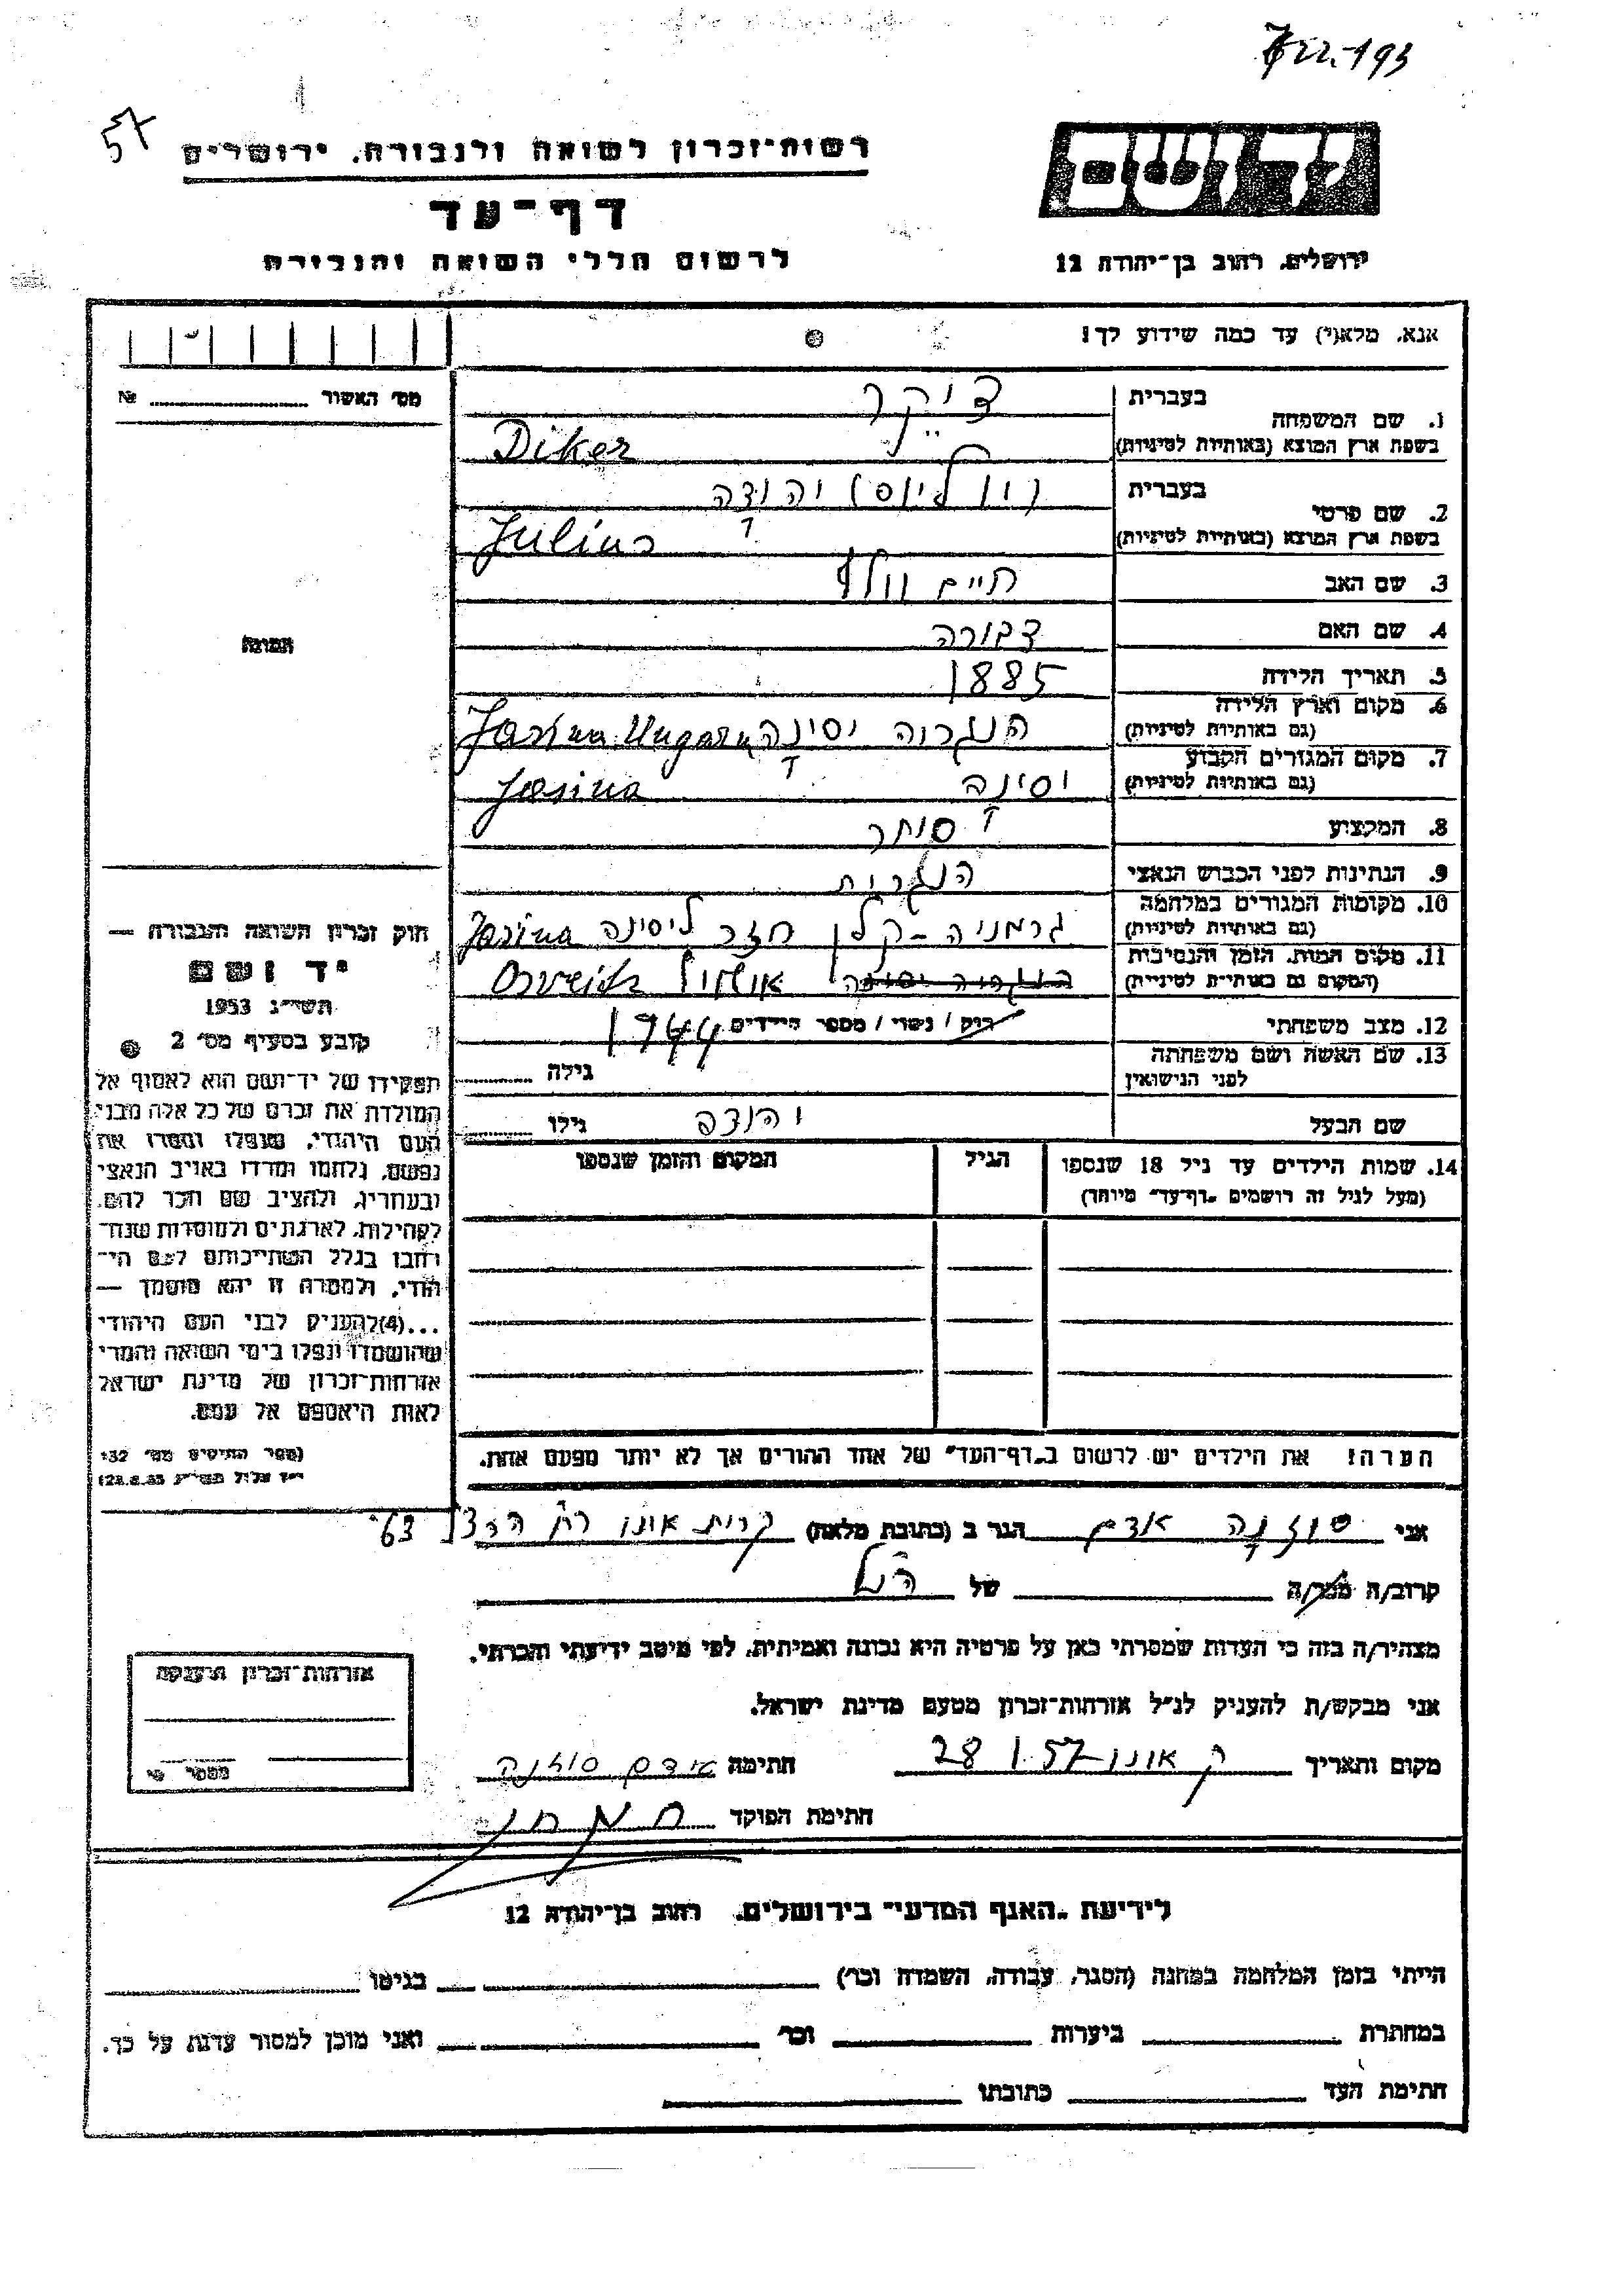 57
רשות־זכרון לשואה ולגבורה. ירושלים
דף־עד
לרשום חללי השואה והגבורה
יד ושם
ירושלים, רחוב בן־יהודה 12
אנא, מלא(י) עד כמה שידוע לך!
מס׳ האשור № 
1. שם המשפחה
בעברית דיקר
בשפת ארץ המוצא (באותיות לטיניות) Diker
2. שם פרטי
בעברית (יוליוס) יהודה
בשפת ארץ המוצא (באותיות לטיניות) Julius
3. שם האב חיים וולף
4. שם האם דבורה
5. תאריך הלידה 1885
6. מקום וארץ הלידה (גם באותיות לטיניות) הונגריה יסינה Jasina
7. מקום המגורים הקבוע (גם באותיות לטיניות) יסינה Jasina
8. המקצוע סוחר
9. הנתינות לפני הכבוש הנאצי הונגרית
10. מקומות המגורים במלחמה (גם באותיות לטיניות) גרמניה - קלן חזר ליסינה Jasina
11. מקום המות, הזמן והנסיבות (המקום גם באותיות לטיניות)
12. מצב משפחתי רוק / נשוי / מספר הילדים 1944
13. שם האשה ושם משפחתה לפני הנישואין גילה
שם הבעל יהודה גילו
14. שמות הילדים עד גיל 18 שנספו (מעל לגיל זה רושמים „דף־עד״ מיוחד)
הגיל
המקום והזמן שנספו
הערה! את הילדים יש לרשום ב„דף־העד״ של אחד ההורים אך לא יותר מפעם אחת.
התמונה
חוק זכרון השואה והגבורה —
יד ושם
תשי״ג 1953
קובע בסעיף מס׳ 2
תפקידו של יד־ושם הוא לאסוף אל
המולדת את זכרם של כל אלה מבני
העם היהודי, שנפלו ומסרו את
נפשם, נלחמו ומרדו באויב הנאצי
ובעוזריו, ולהציב שם וזכר להם,
לקהילות, לארגונים ולמוסדות שנח־
רבו בגלל השתייכותם לעם הי־
הודי, ולמטרה זו יהא מוסמך —
...(4)להעניק לבני העם היהודי
שהושמדו ונפלו בימי השואה והמרי
אזרחות־זכרון של מדינת ישראל
לאות היאספם אל עמם.
(ספר החוקים מס׳ 132
אני סוזנה אדם הגר ב (כתובת מלאה) קרית אונו רח׳ הרצל 63
קרוב/ה מכר/ה של הנ״ל
מצהיר/ה בזה כי העדות שמסרתי כאן על פרטיה היא נכונה ואמיתית, לפי מיטב ידיעתי והכרתי.
אני מבקש/ת להעניק לנ״ל אזרחות־זכרון מטעם מדינת ישראל.
מקום ותאריך ק אונו 28.1.57 חתימה אדם סוזנה
חתימת הפוקד
אזרחות־זכרון הוענקה
מספר
לידיעת „האגף המדעי״ בירושלים, רחוב בן־יהודה 12
הייתי בזמן המלחמה במחנה (הסגר, עבודה, השמדה וכו׳) בגיטו
במחתרת ביערות וכו׳ ואני מוכן למסור עדות על כך.
חתימת העד כתובתו